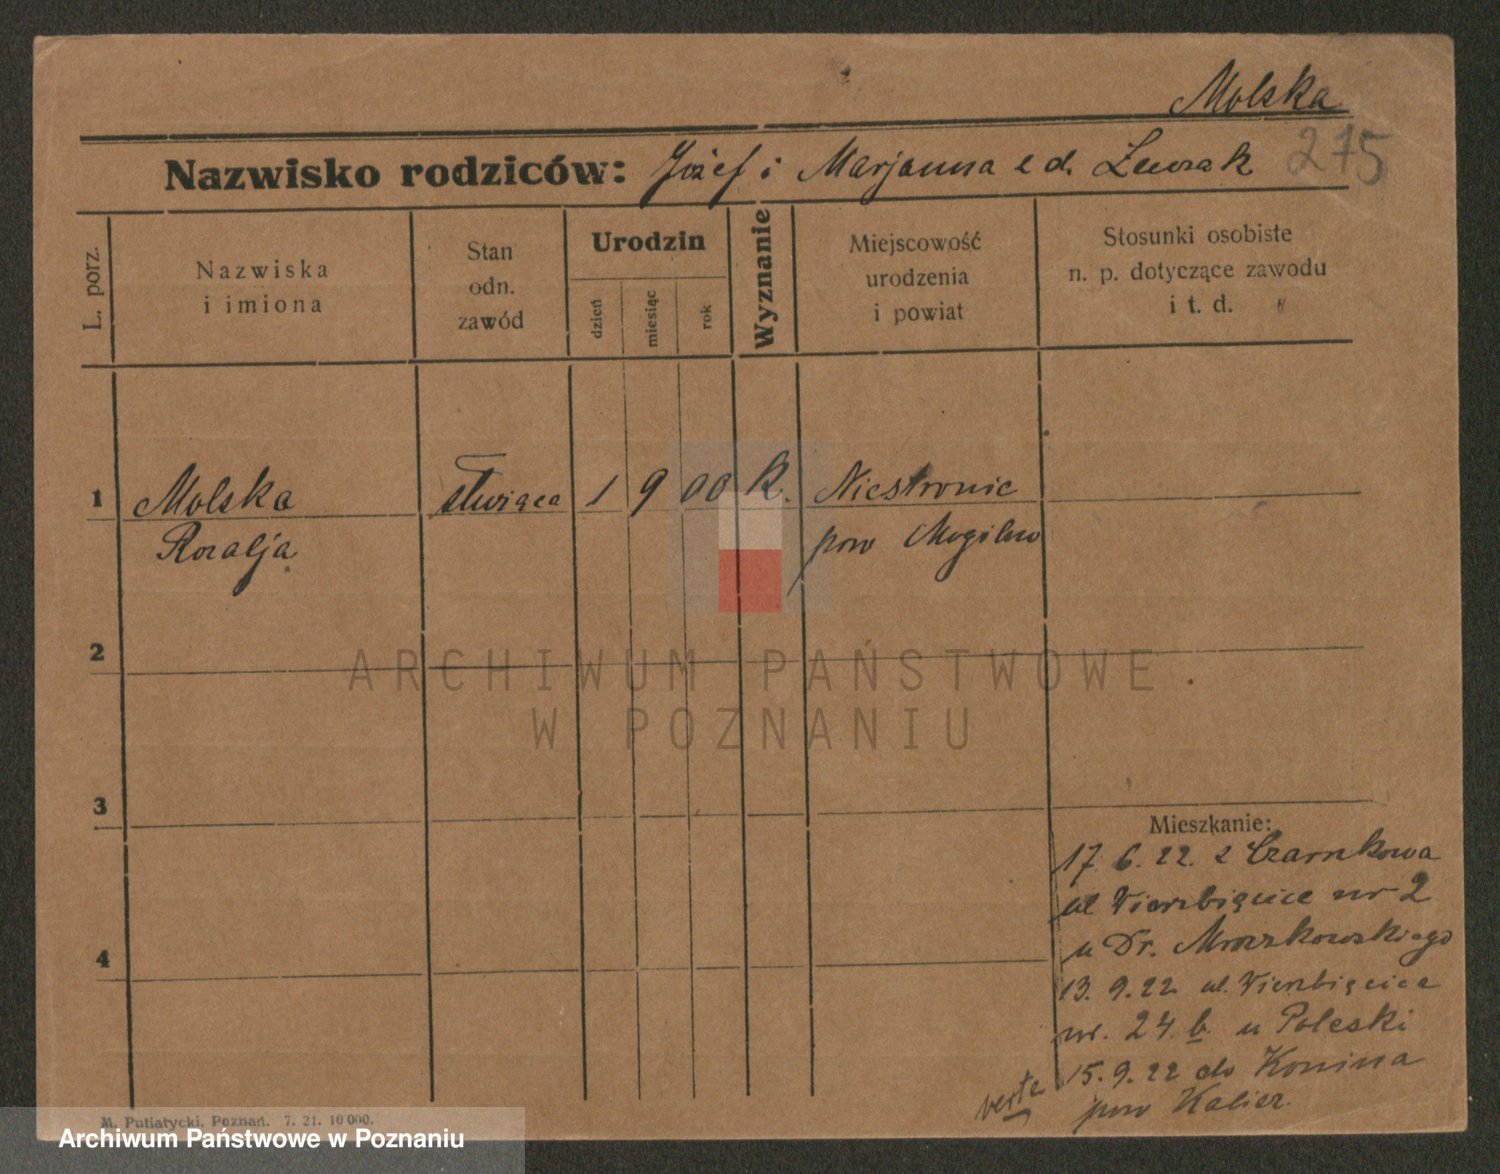 Molska
275
Nazwisko rodziców: Józef i Marjanna z d.
L. porz.
Nazwiska
i imiona
Stan
odn.
zawód
Urodzin
dzień
miesiąc
rok
Wyznanie
Miejscowość
urodzenia
i powiat
Stosunki osobiste
n. p. dotyczące zawodu
i t. d. "
1 Molska służąca 1 9 00 k. Niestronie
Rozalja pow Mogilno
2
3
4
ARCHIWUM PAŃSTWOWE
W POZNANIU
Mieszkanie:
17. 6. 22. z Czarnkowa
ul Wierzbięcice nr 2
u Dr. Mroczkowskiego
13. 9. 22. ul. Wierzbięcice
nr. 24. b. u Poleski
15. 9. 22 do Konina
pow Kalisz.
verte
M. Putiatycki, Poznań. 7. 21. 10 000.
Archiwum Państwowe w Poznaniu